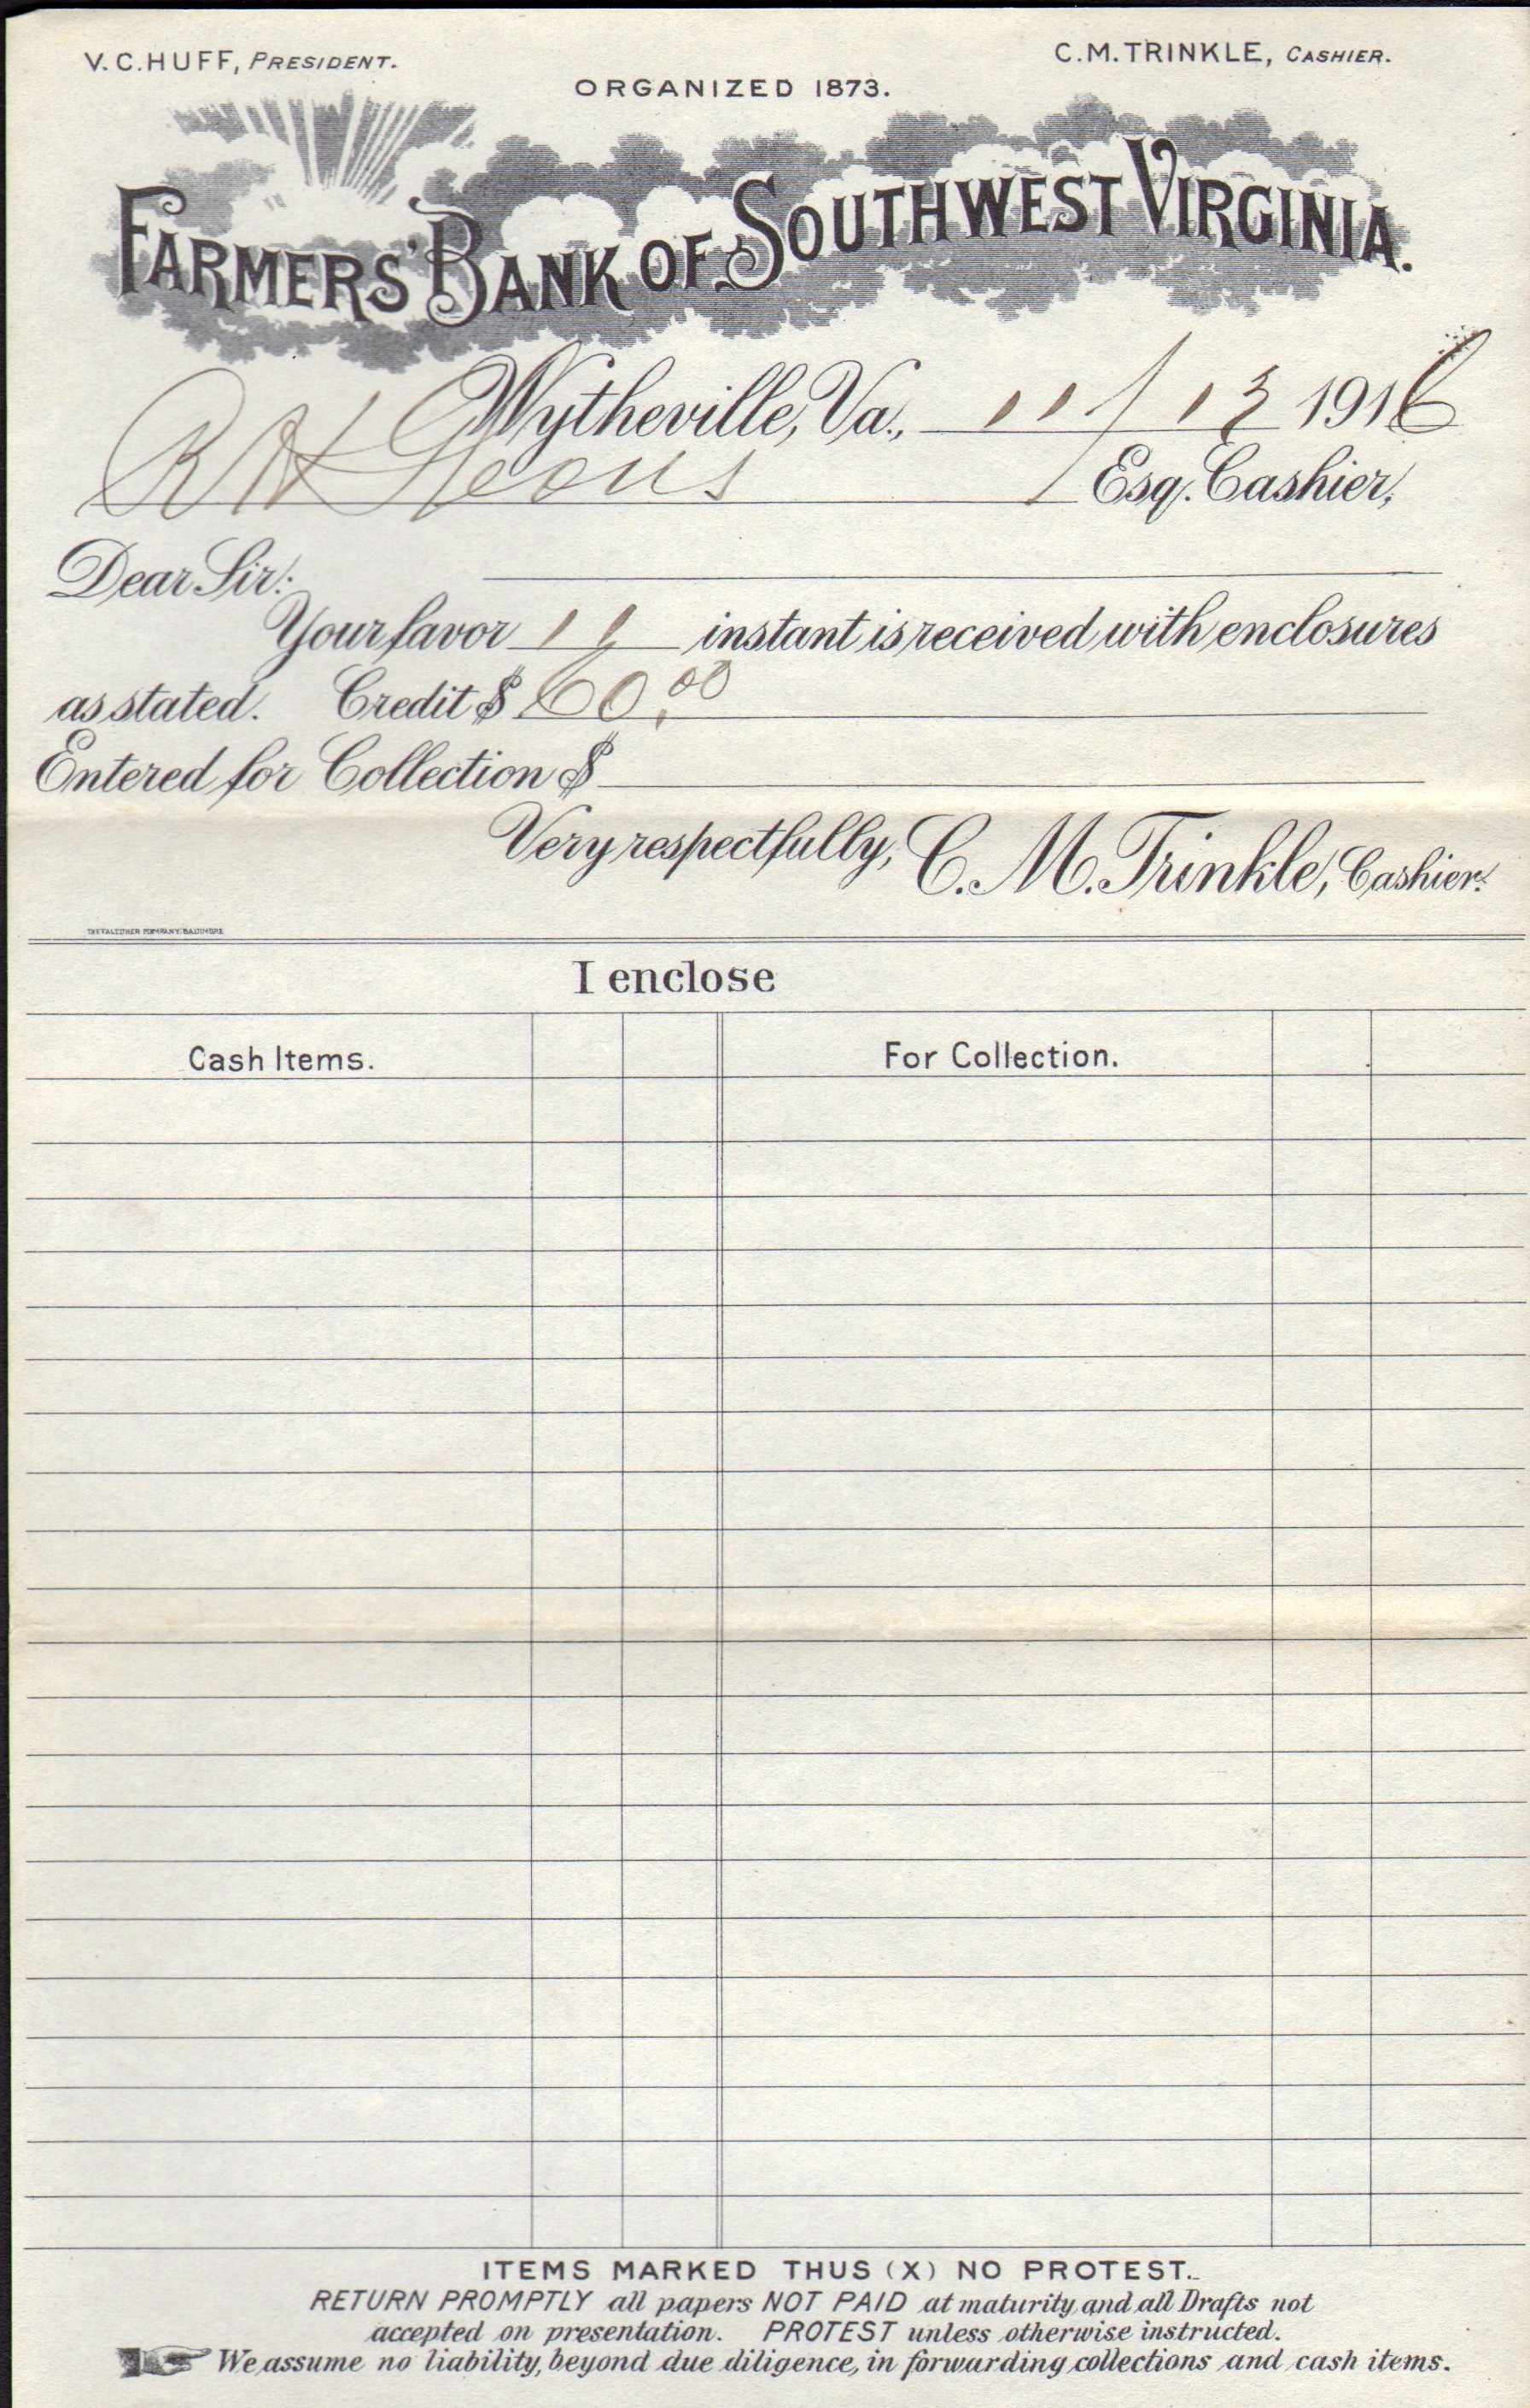 V. C. HUFF, PRESIDENT.
C. M. TRINKLE, CASHIER.
ORGANIZED 1873.
FARMERS' BANK OF SOUTHWEST VIRGINIA.
Wytheville, Va., 11/13 1916
R A Esq. Cashier,
Dear Sir:
Your favor 11 instant is received with enclosures
as stated. Credit $ 60.00
Entered for Collection $
Very respectfully, C. M. Trinkle, Cashier.
THE FALCONER COMPANY, BALTIMORE
I enclose
Cash Items. For Collection.
ITEMS MARKED THUS (X) NO PROTEST.
RETURN PROMPTLY all papers NOT PAID at maturity and all Drafts not
accepted on presentation. PROTEST unless otherwise instructed.
We assume no liability, beyond due diligence, in forwarding collections and cash items.